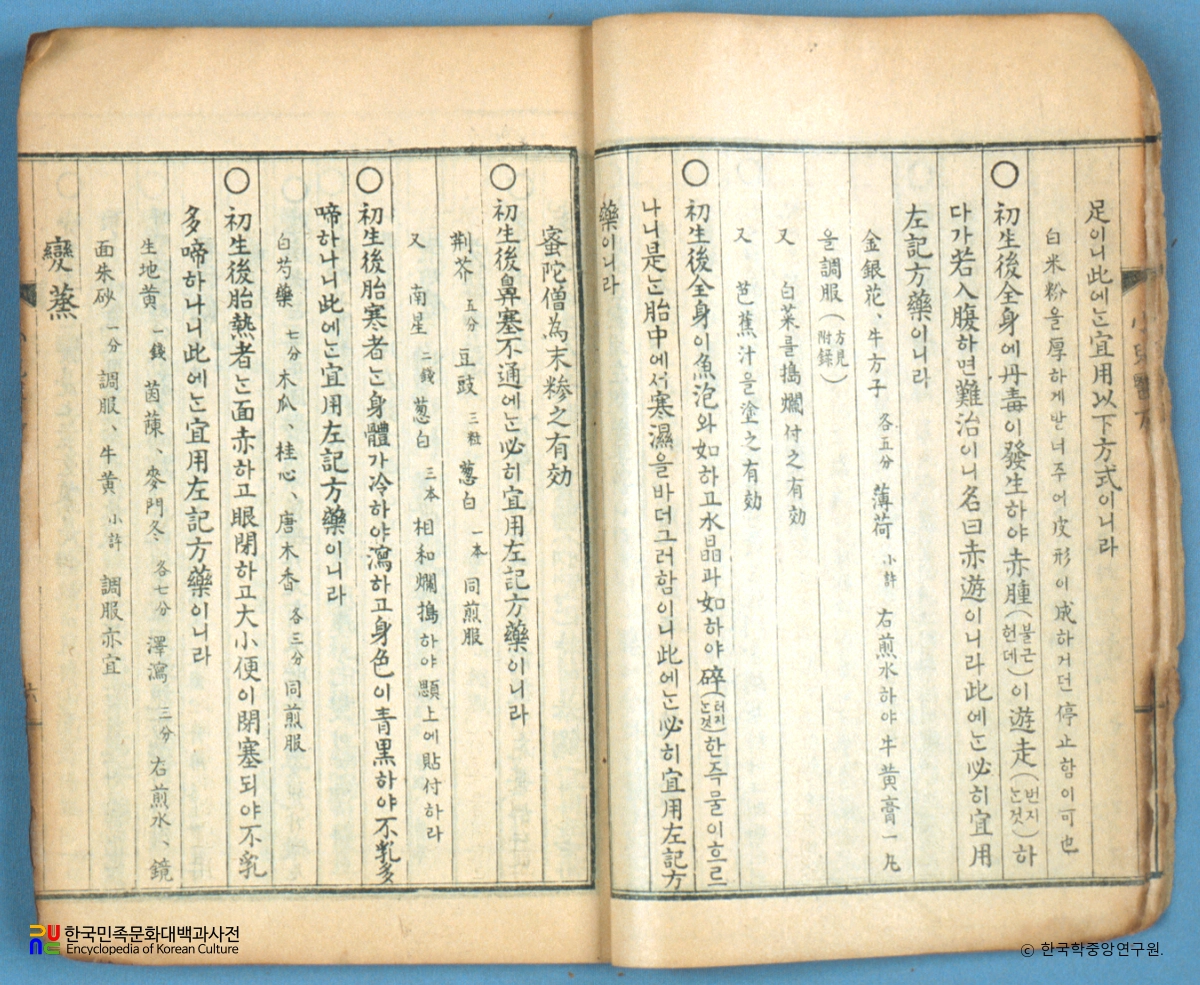 足이니此에는宜用以下方式이니라
白米粉을厚하게반너주어皮形이成하거던停止함이可也
○初生後全身에丹毒이發生하야赤腫(불근헌데)이遊走(번지는것)하
다가若入腹하면難治이니名曰赤遊이니라此에는必히宜用
左記方藥이니라
金銀花、牛方子 各五分 薄荷 小許 右煎水하야牛黃膏一丸
을調服(方見附録)
又 白菜를搗爛付之有効
又 芭蕉汁을塗之有効
○初生後全身이魚泡와如하고水晶과如하야碎(터지는것)한즉물이흐르
나니是는胎中에서寒濕을바더그러함이니此에는必히宜用左記方
藥이니라
小兒醫方
蜜陀僧為末糝之有効
○初生後鼻塞不通에는必히宜用左記方藥이니라
荆芥 五分 豆豉 三粒 葱白 一本 同煎服
又 南星 二錢 葱白 三本 相和爛搗하야顋上에貼付하라
○初生後胎寒者는身體가冷하야瀉하고身色이青黑하야不乳多
啼하나니此에는宜用左記方藥이니라
白芍藥 七分 木瓜、桂心、唐木香 各三分 同煎服
○初生後胎熱者는面赤하고眼閉하고大小便이閉塞되야不乳
多啼하나니此에는宜用左記方藥이니라
生地黄 一錢 茵蔯、麥門冬 各七分 澤瀉 三分 右煎水、鏡
面朱砂 一分 調服、牛黄 小許 調服亦宜
變蒸
六
한국민족문화대백과사전
Encyclopedia of Korean Culture
ⓒ 한국학중앙연구원.